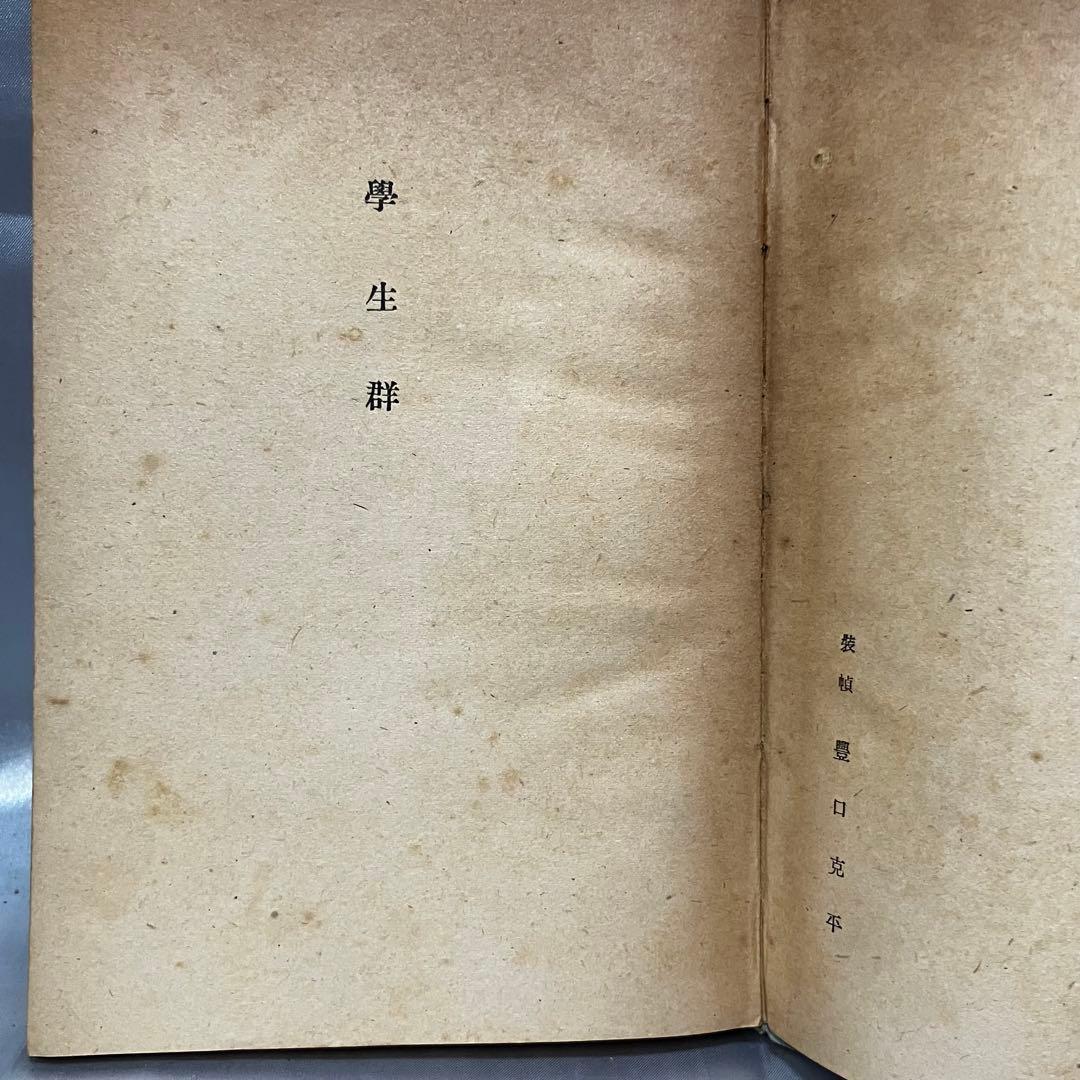 裝幀 豐口克平
學生群